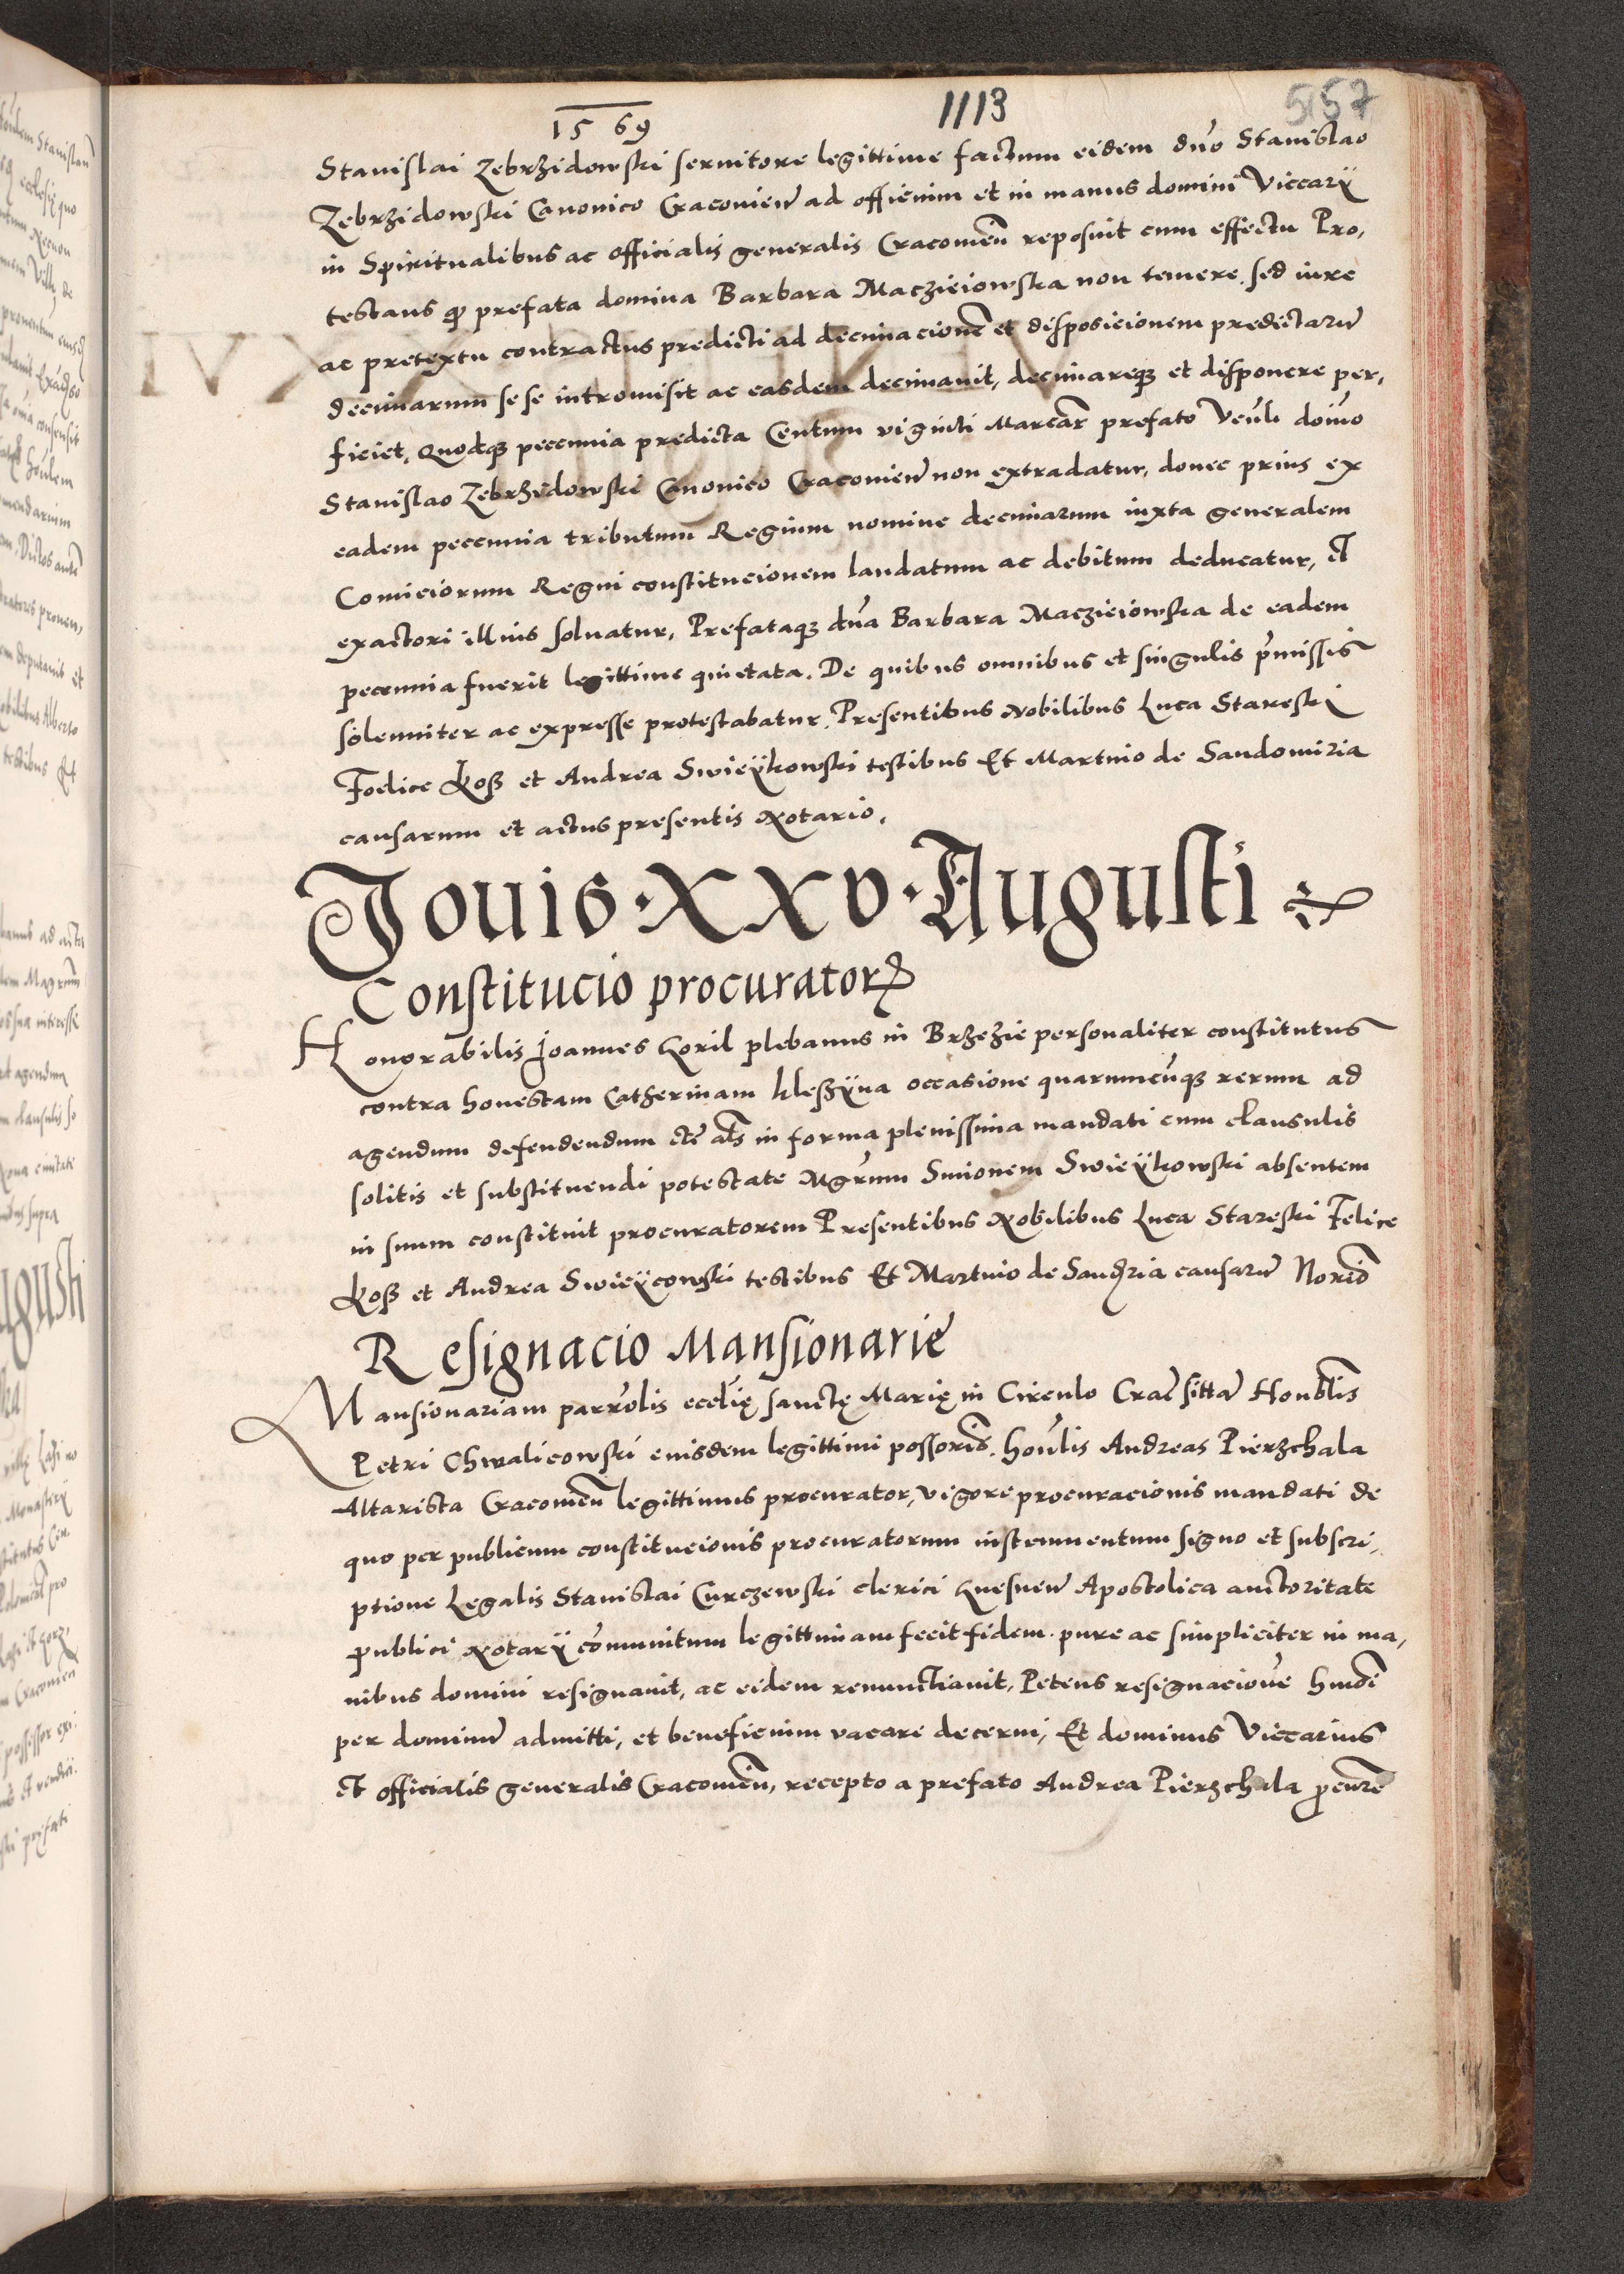 1569
1113
5157
Stanislai Zebrzidowski seruitore legittime factum eidem dno Stanislao
Zebrzidowski Canonico Cracouien ad officium et in manus domini Viccarÿ
in Spiritualibus ac officialis generalis Cracouien reposuit cum effectu Pro,
testans ꝙ prefata domina Barbara Maczieiowska non temere, sed iure
ac pretextu contractus predicti ad decimacionē et disposicionem predictarū
decimarum se se intromisit ac easdem decimauit, decimareqꝫ et disponere per,
ficiet, Quodqꝫ peccunia predicta Centum viginti Marcar prefato Venli domo
Stanislao Zebrzidowski Canonico Cracouien non extradatur, donec prius ex
eadem peccunia tributum Regium nomine decimarum iuxta generalem
Comiciorum Regni constitucionem laudatum ac debitum deducatur, et
exactori illius soluatur, Prefataqꝫ dna Barbara Maczieiowska de eadem
peccunia fuerit legittime quietata. De quibus omnibus et singulis pmissis
solenniter ac expresse protestabatur, Presentibus Nobilibus Luca Stareski
Foelice Koß et Andrea Swieÿkowski testibus Et Martino de Sandomiria
causarum et actus presentis Notario.
Jouis · XXV · Augusti
Constitucio procuratorꝫ
Honorabilis Joannes Koril plebanus in Brzezie personaliter constitutus
contra honestam Catherinam Kleßÿna occasione quarumcunqꝫ rerum ad
agendum defendendum etc als in forma plenissima mandati cum clausulis
solitis et substituendi potestate Mgrum Simonem Swieÿkowski absentem
in suum constituit procuratorem Presentibus Nobilibus Luca Stareski Felice
Koß et Andrea Swieÿcowski testibus Et Martino de Sandria causarū Norio
Resignacio Mansionarie
Mansionariam parrolis ecclię sanctę Marię in Circulo Crac sittā Honblis
Petri Chwalicowski eiusdem legittimi possoris, honlis Andreas Pierzchala
Altarista Cracouien legittimus procurator, vigore procuracionis mandati de
quo per publicum constitucionis procuratorum instrumentum signo et subscri,
ptione Legalis Stanislai Curczewski clerici Gnesnen Apostolica auctoritate
publici Notarÿ comunitum legittimam fecit fidem, pure ac simpliciter in ma,
nibus domini resignauit, ac eidem renunctiauit, Petens resignacione hmoi
per dominū admitti, et beneficium vacare decerni, Et dominus Viccarius
et officialis generalis Cracouien, recepto a prefato Andrea Pierzchala pcure